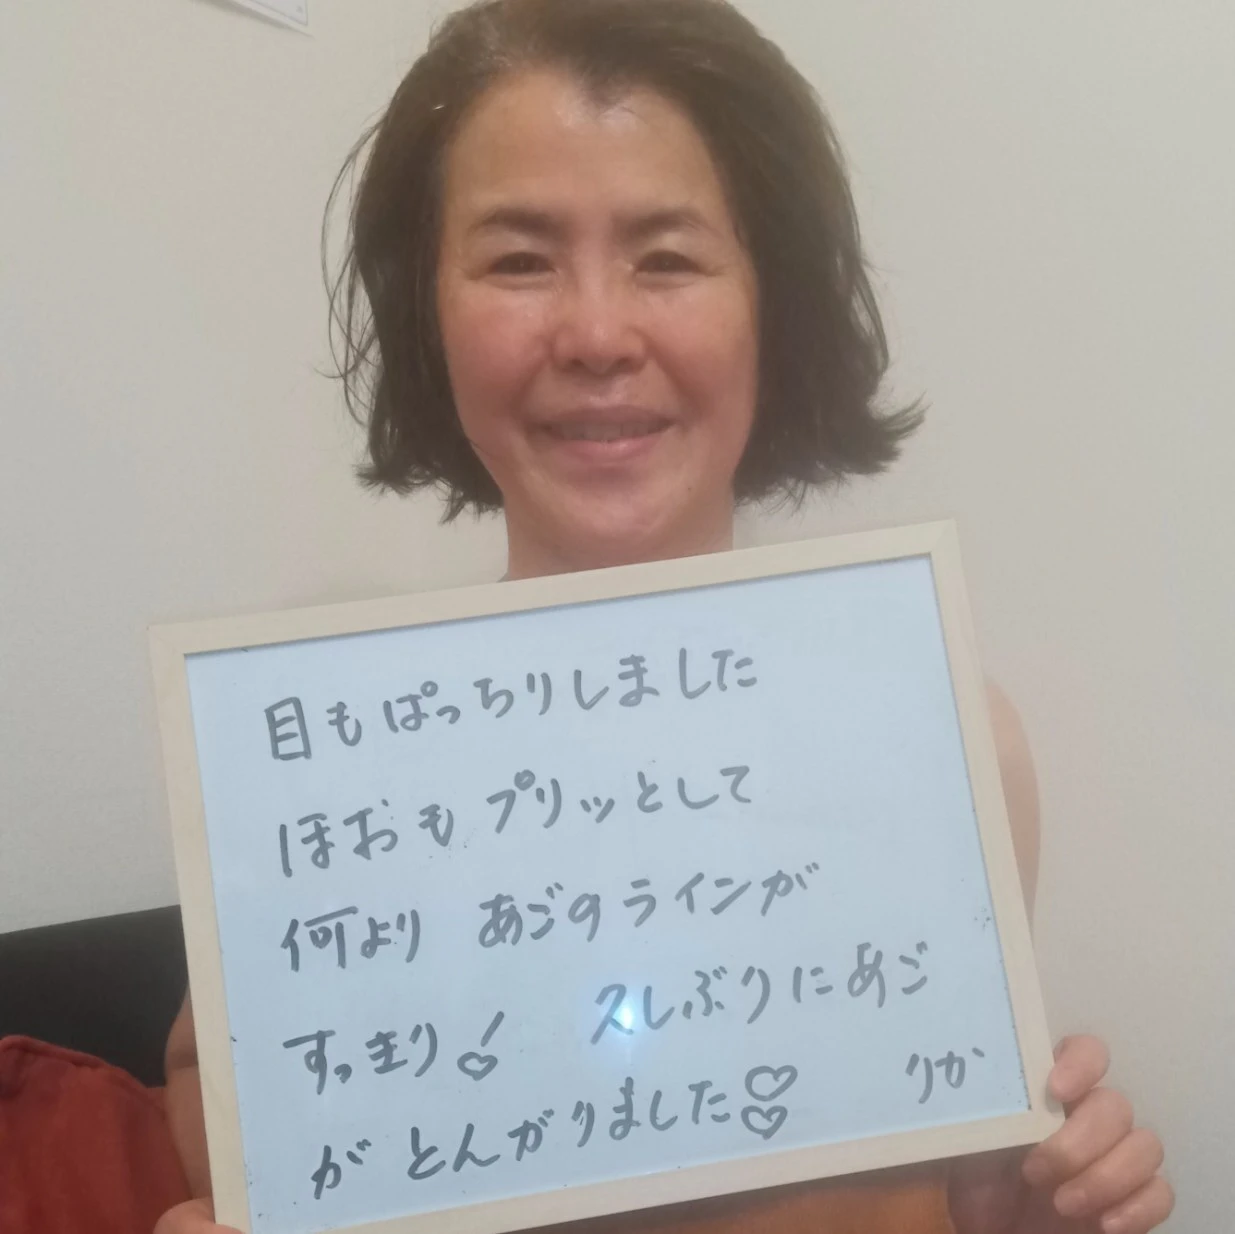 目もぱっちりしました
ほおもプリッとして
何より あごのラインが
すっきり! 久しぶりにあご
がとんがりました♡♡ りか